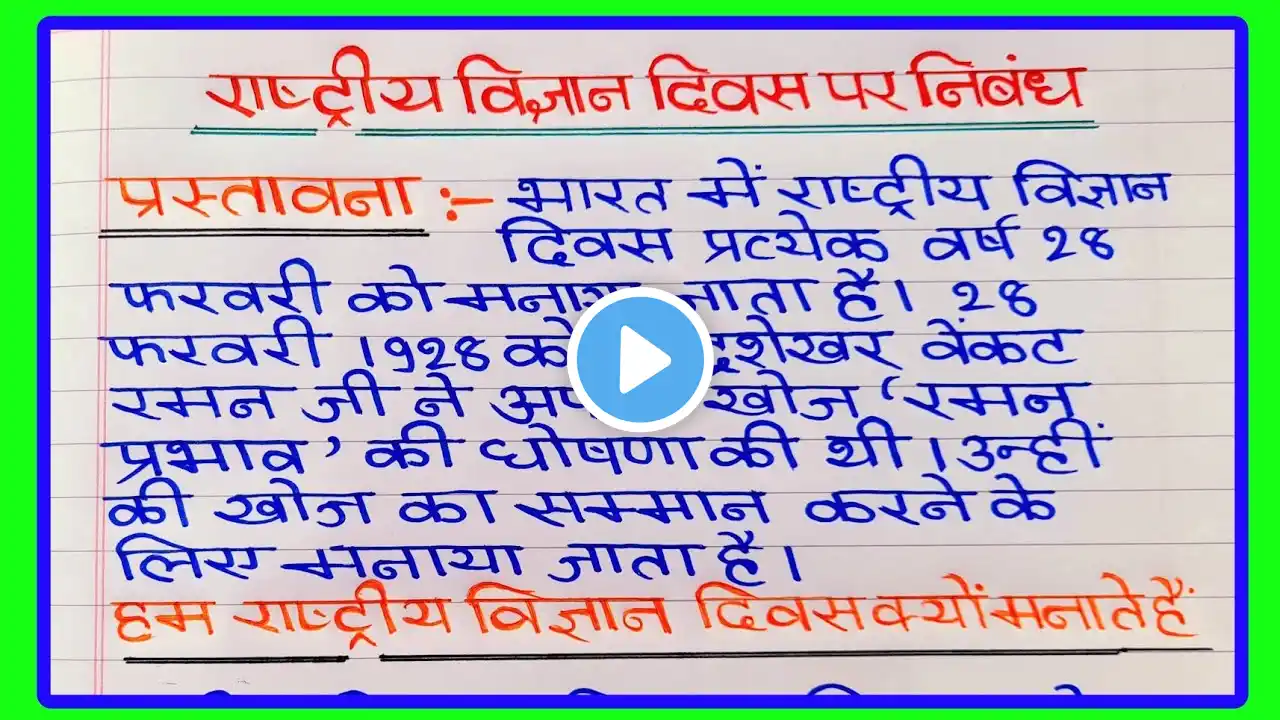 राष्ट्रीय विज्ञान दिवस पर निबंध
प्रस्तावना :- भारत में राष्ट्रीय विज्ञान
दिवस प्रत्येक वर्ष 28
फरवरी को जाता है। 28
फरवरी 1928 को वेंकट
रमन जी ने खोज 'रमन
प्रभाव' की घोषणा की थी। उन्हीं
की खोज का सम्मान करने के
लिए मनाया जाता है।
हम राष्ट्रीय विज्ञान दिवस क्यों मनाते हैं